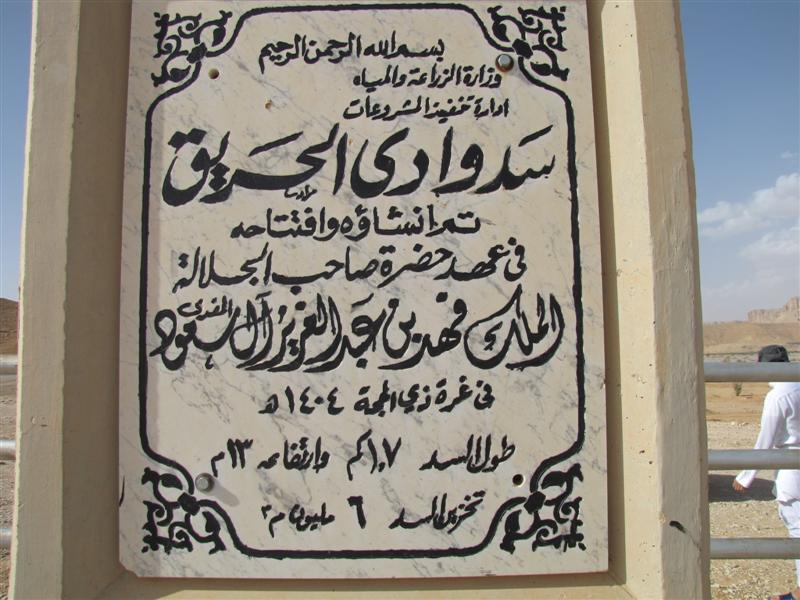 بسم الله الرحمن الرحيم
وزارة الزراعة والمياه
ادارة تنفيذ المشروعات
سد وادى الحريق
تم انشاؤه وافتتاحه
فى عهد حضرة صاحب الجلالة
الملك فهد بن عبد العزيز آل سعود المفدى
فى غرة ذي الحجة ١٤٠٤ هـ
طول السد ١,٧ كم وارتفاعه ١٣ م
تخزين السد ٦ مليون م٣